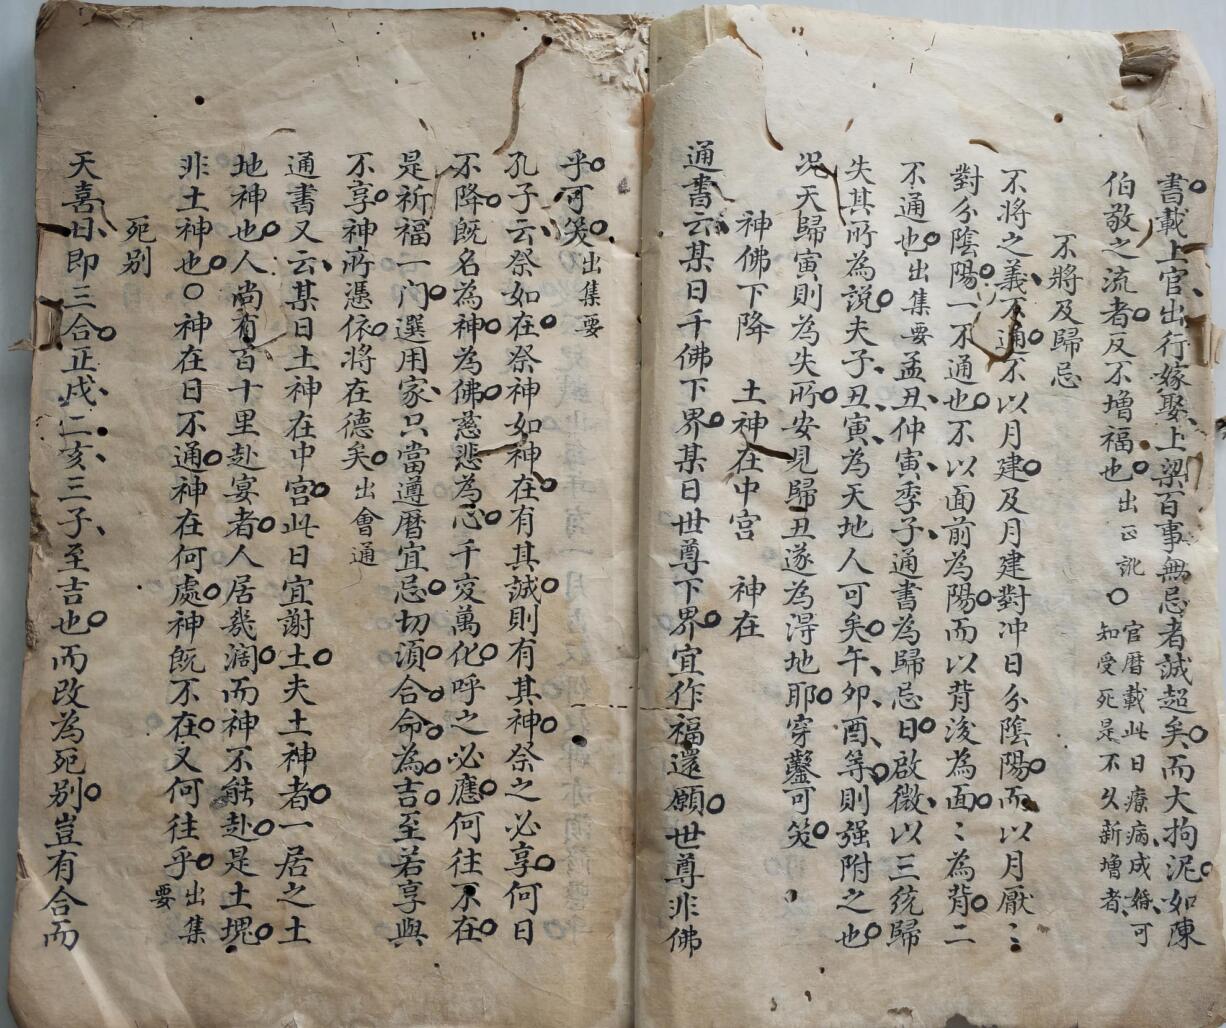 書載上官出行嫁娶上梁百事無忌者誠超矣而大拘泥如陳
伯敬之流者反不增福也出正訛〇官曆載此日療病成婚可
知受死是不久新增者
不將及歸忌
不將之義不通不以月建及月建對冲日分陰陽而以月厭〻
對分陰陽一不通也不以面前為陽而以背後為面〻為背二
不通也出集要孟丑仲寅季子通書為歸忌日啟微以三统歸
失其所為說夫子丑寅為天地人可矣午卯酉等則强附之也
况天歸寅則為失所安見歸丑遂為淂地耶穿鑿可笑
神佛下降 土神在中宫 神在
通書云某日千佛下界某日世尊下界宜作福還願世尊非佛
乎可笑出集要
孔子云祭如在祭神如神在有其誠則有其神祭之必享何日
不降既名為神為佛慈悲為心千变萬化呼之必應何往不在
是祈福一门選用家只當遵暦宜忌切湏合命為吉至若享與
不享神所憑依將在德矣出會通
通書又云某日土神在中宫此日宜謝土夫土神者一居之土
地神也人尚有百十里赴宴者人居幾濶而神不能赴是土塊
非土神也〇神在日不通神在何處神既不在又何往乎出集
要
死别
天喜日即三合正戌二亥三子至吉也而改為死别豈有合而